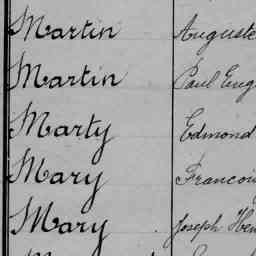 Martin Auguste
Martin Paul Eug
Marty Edmond
Mary Francois
Mary Joseph Hen